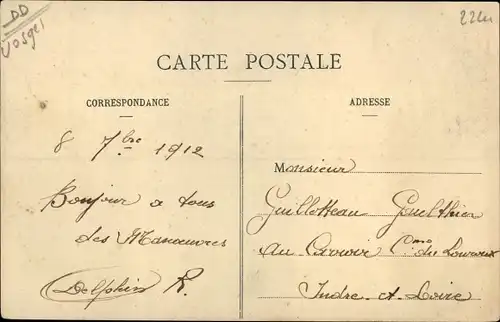 DD
Vosges
CARTE POSTALE
CORRESPONDANCE
8 7bre 1912
Bonjour a tous
des Manœuvres
Delphin R.
ADRESSE
Monsieur
Guillotteau Gaulthier
au Carroir Cne du Louroux
Indre-et-Loire